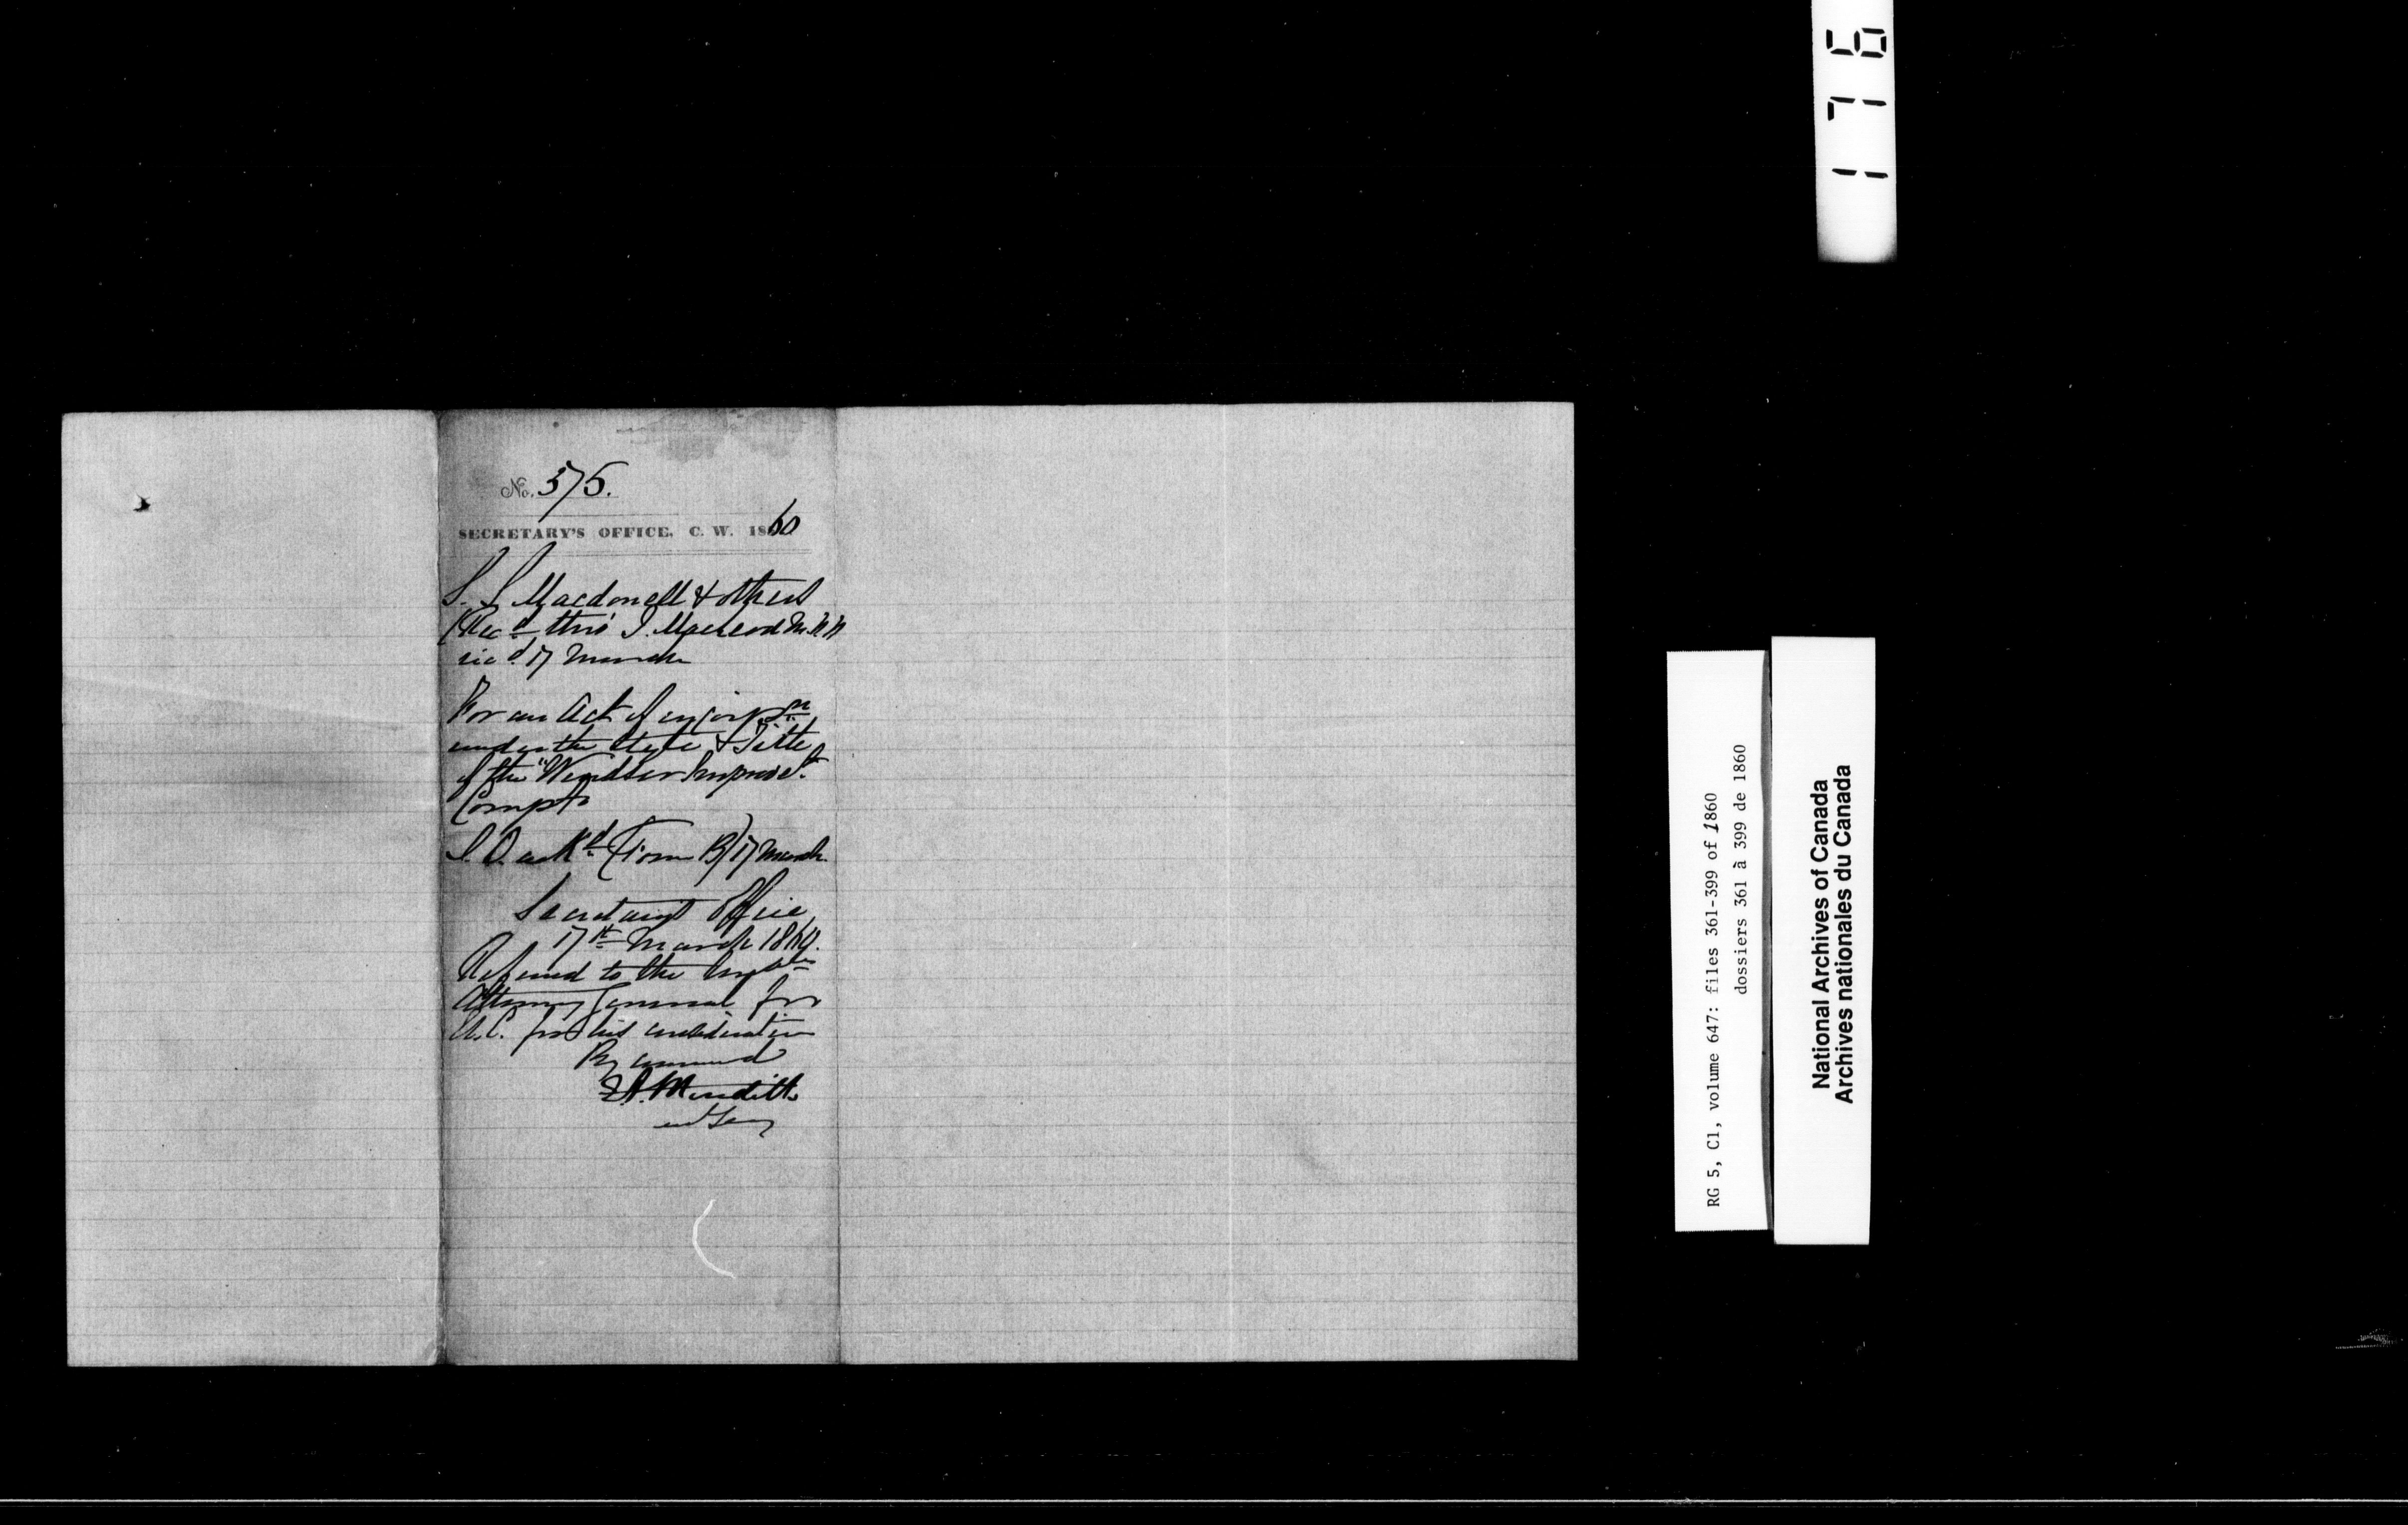 No. 375.
SECRETARY'S OFFICE, C. W. 1860
S. S. Macdonell & others
(Recd thro' J. Macleod M.P.P.
recd 17 March
For an Act of incorpn
under the style & Title
of the "Windsor Improvet
Compy
ackd (Form B) 17 March
Secretary's Office
17th March 1860.
Referred to the Honble
Attorney General for
U.C. for his consideration
By command
E. A. Meredith
176
RG 5, C1, volume 647: files 361-399 of 1860
dossiers 361 à 399 de 1860
National Archives of Canada
Archives nationales du Canada